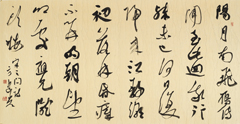 陽月南飛雁傳
聞至此回我行
殊未已何日復
歸來江靜潮
初落林昏瘴
不開明朝望
鄉處應見隴
頭梅